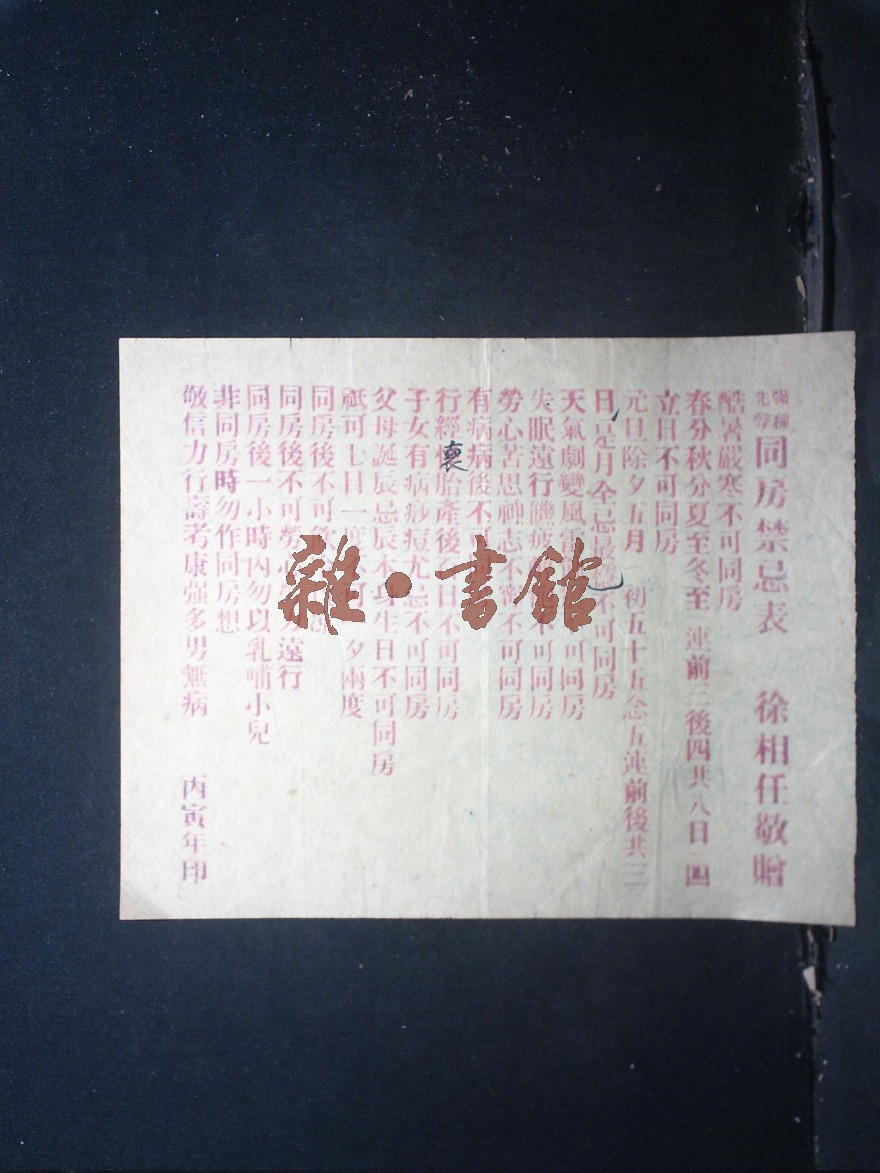 張聿聲先 同房禁忌表 徐相任敬贈
酷暑嚴寒不可同房
春分秋分夏至冬至 連前三後四共八日 四
立日不可同房
元旦除夕五月 初五十五念五連前後共三
日 是月全忌最 不可同房
天氣劇變風雷 可同房
失眠遠行饑疲 不可同房
勞心苦思神志不 不可同房
有病病後不可
行經懷胎產後 日不可同房
裹
子女有病痧痘尤忌不可同房
父母誕辰忌辰本身生日不可同房
祗可七日一度 夕兩度
同房後不可
同房後不可勞 遠行
同房後一小時內勿以乳哺小兒
非同房時勿作同房想
敬信力行壽考康強多男無病 丙寅年印
雜·書館